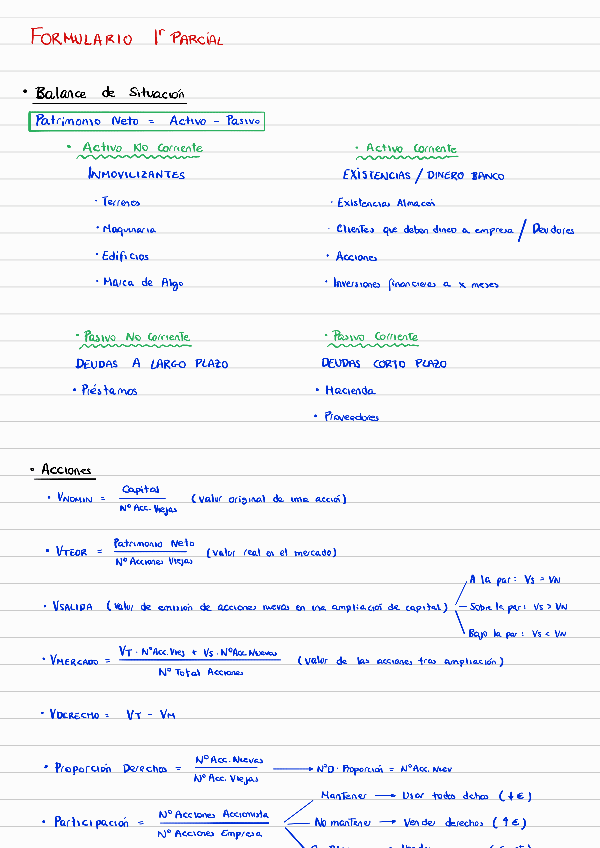 FORMULARIO 1r PARCIAL
• Balance de Situación
Patrimonio Neto = Activo - Pasivo
• Activo No Corriente
INMOVILIZANTES
• Terrenos
• Maquinaria
• Edificios
• Marca de Algo
• Activo Corriente
EXISTENCIAS / DINERO BANCO
• Existencias Almacén
• Clientes que deben dinero a empresa / Deudores
• Acciones
• Inversiones financieras a x meses
• Pasivo No Corriente
DEUDAS A LARGO PLAZO
• Préstamos
• Pasivo Corriente
DEUDAS CORTO PLAZO
• Hacienda
• Proveedores
• Acciones
• VNOMIN = Capital / Nº Acc. Viejas (valor original de una acción)
• VTEOR = Patrimonio Neto / Nº Acciones Viejas (valor real en el mercado)
• VSALIDA (valor de emisión de acciones nuevas en una ampliación de capital)
A la par: Vs = VN
Sobre la par: Vs > VN
Bajo la par: Vs < VN
• VMERCADO = VT · Nº Acc. Viej + Vs · Nº Acc. Nuevas / Nº Total Acciones (valor de las acciones tras ampliación)
• VDERECHO = VT - VM
• Proporción Derechos = Nº Acc. Nuevas / Nº Acc. Viejas → NºD · Proporción = Nº Acc. Nuev
• Participación = Nº Acciones Accionista / Nº Acciones Empresa
Mantener → Usar todos dchos (↓€)
No mantener → Vender derechos (↑€)